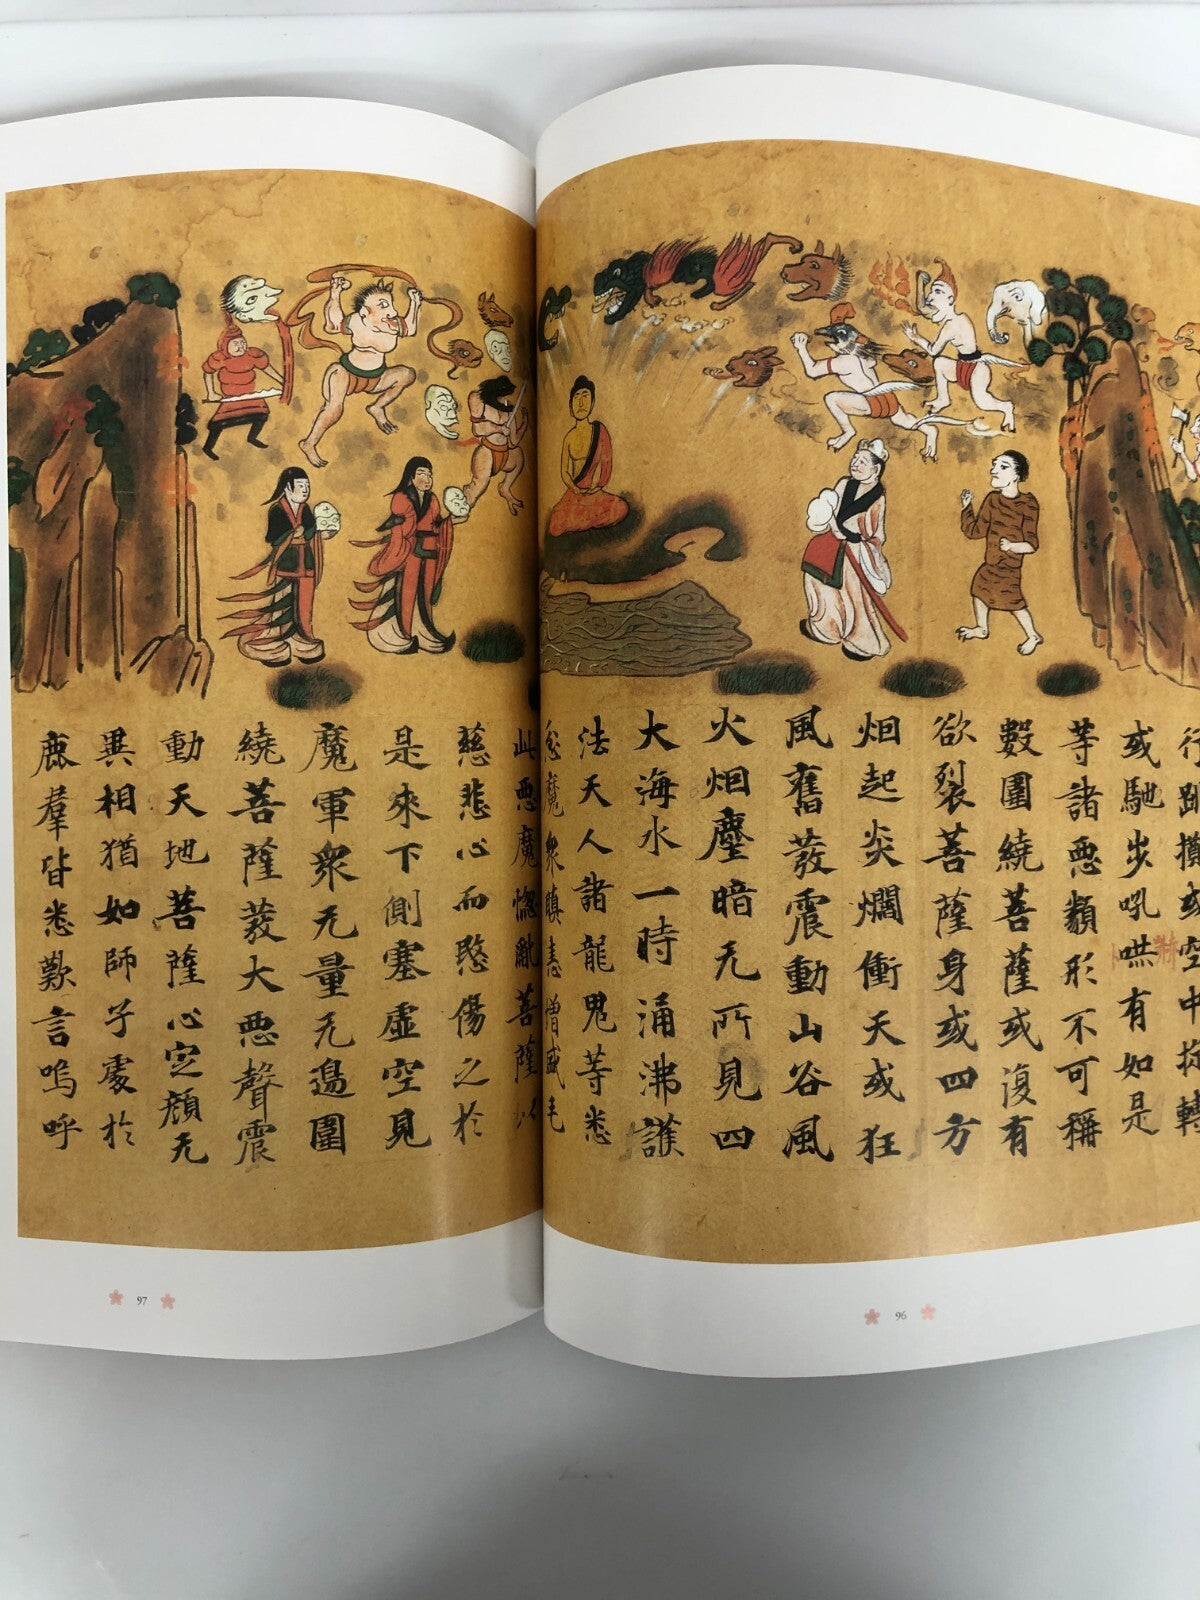 行跳擲或空中旋轉
或馳步吼哄有如是
等諸悪類形不可稱
數圍繞菩薩或復有
欲裂菩薩身或四方
烟起炎爛衝天或狂
風奮發震動山谷風
火烟塵暗无所見四
大海水一時涌沸護
法天人諸龍鬼等悉
忿魔衆瞋恚增盛毛
此悪魔惚亂菩薩以
慈悲心而愍傷之於
是來下側塞虛空見
魔軍衆无量无邊圍
繞菩薩發大悪聲震
動天地菩薩心定顔无
異相猶如師子處於
鹿羣皆悉歎言嗚呼
97
96